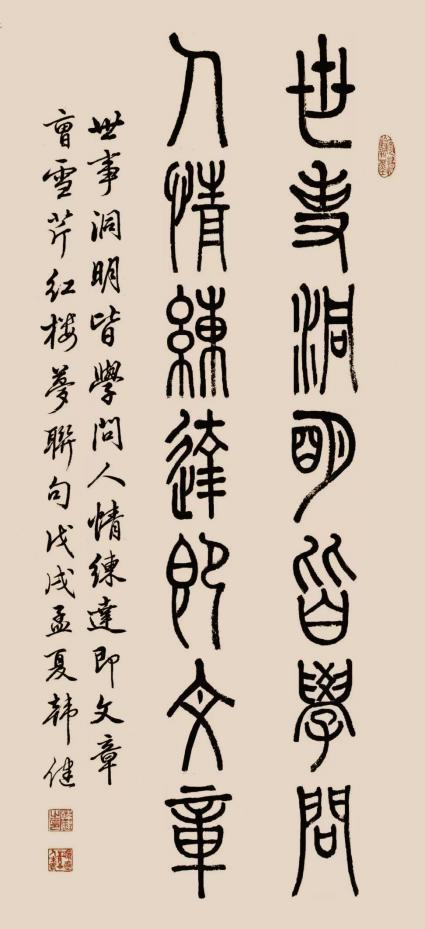 世事洞明皆學問
人情練達即文章
世事洞明皆學問人情練達即文章
曹雪芹红楼夢聯句戊戌孟夏韩健